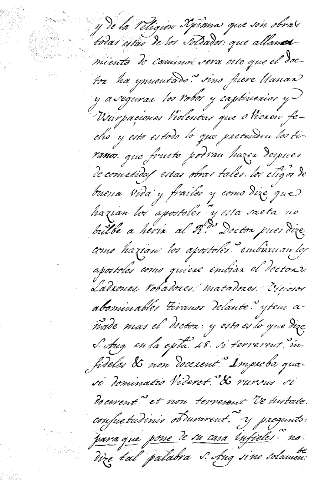 y de la religion Xpiana que son obras
todas estas de los soldados. que allana-
miento de camino sera este que el doc-
tor ha ynventado. sino fuere llanar
y asegurar los robos y captiverios y
Usurpaciones violentas que oviesen fe-
cho y esto es todo lo que pretenden los ti-
ranos. que fructo podran hazer despues
de cometidas estas obras tales. los clerigos de
buena vida y frailes y como dize que
hazian los apostoles. y esta saeta no
buelbe a herir al R.do Doctor pues dize
como hazian los apostoles. embiavan los
apostoles como quiere embiar el doctor a
ladrones, robadores, matadores, viciosos
abominables tiranos delante. yten a-
ñade mas el doctor. y esto es lo que dize
S. Aug. en la epist.ª 48. si terrerent.r in
fideles & non docerent.r Improba qua-
si dominatio videret.r & rursus si
docerent.r et non terrerent.r vetustate
consuetudinis obdurarent.r y pregunto
para que pone de su casa Infieles. no
dize tal palabra S. Aug sino solamente